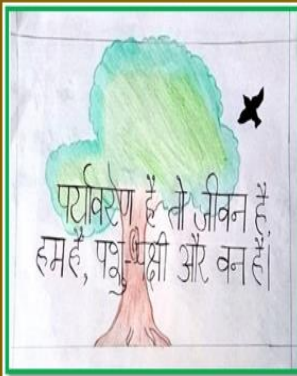 पर्यावरण है तो जीवन है,
हम है, पशु-पक्षी और वन है।